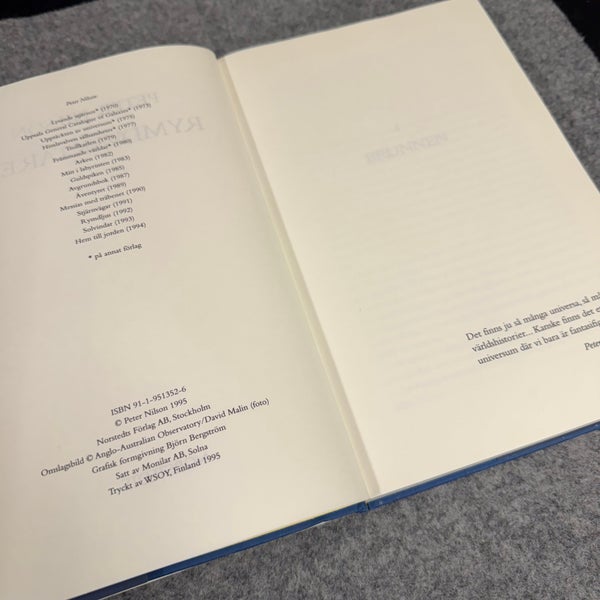 Peter Nilson
Lysande stjärnor* (1970)
Uppsala General Catalogue of Galaxies* (1973)
Upptäckten av universum* (1975)
Himlavalvets sällsamheter* (1977)
Trollkarlen (1979)
Främmande världar* (1980)
Arken (1982)
Min i labyrinten (1983)
Guldspiken (1985)
Avgrundsbok (1987)
Äventyret (1989)
Messias med träbenet (1990)
Stjärnvägar (1991)
Rymdljus (1992)
Solvindar (1993)
Hem till jorden (1994)
* på annat förlag
ISBN 91-1-951352-6
© Peter Nilson 1995
Norstedts Förlag AB, Stockholm
Omslagsbild © Anglo-Australian Observatory/David Malin (foto)
Grafisk formgivning Björn Bergström
Satt av Monilar AB, Solna
Tryckt av WSOY, Finland 1995
Det finns ju så många universa, så
världshistorier... Kanske finns det
universum där vi bara är